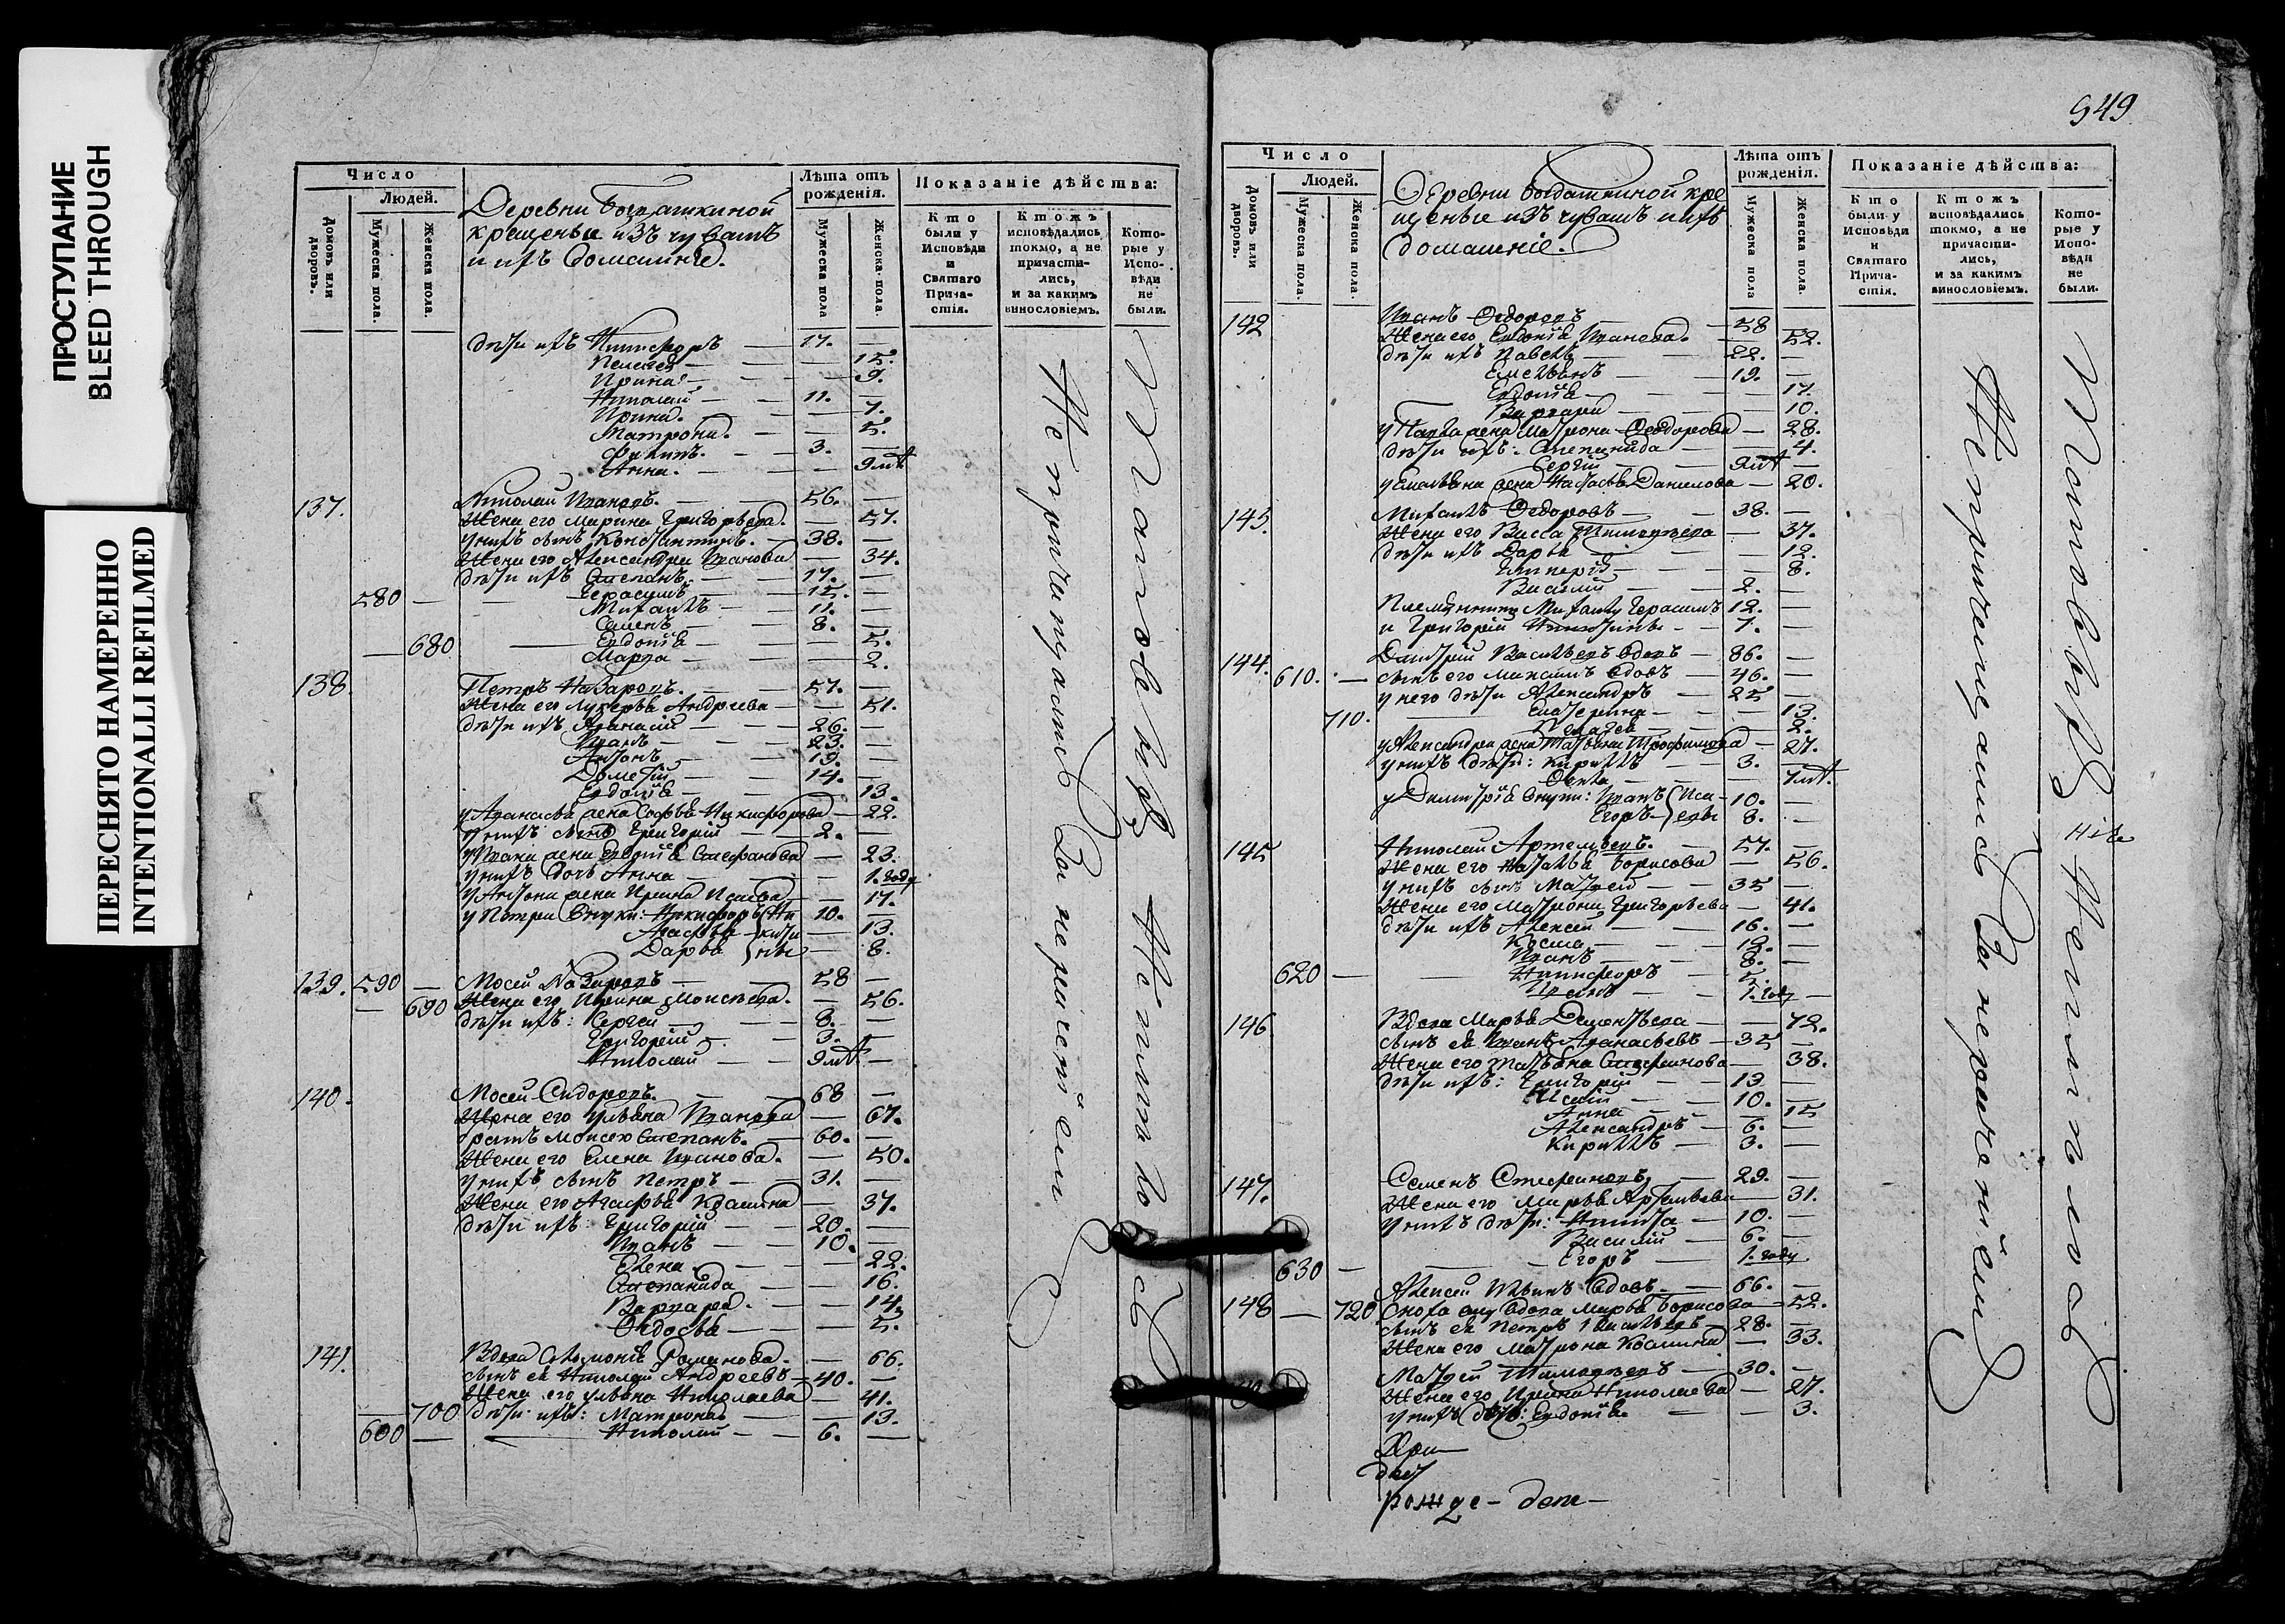 ПРОСТУПАНИЕ
BLEED THROUGH
ПЕРЕСНЯТО НАМЕРЕННО
INTENTIONALLI REFILMED
Число
Людей.
Домовъ или дворовъ.
Мужеска пола.
Женска пола.
Деревни Богдашкиной
крещеные изъ чувашъ
и ихъ домашніе.
Лѣта отъ рожденія.
Мужеска пола
Женска пола.
Показаніе дѣйства:
Кто были у Исповѣди и Святаго Прича-стія.
Ктожъ исповѣдались токмо, а не причасти-лись, и за какимъ винословіемъ.
Кото-рые у Испо-вѣди не были.
дѣти ихъ Никифоръ — 17. —
Пелагея — — 15.
Ирина — — 9.
Николай — 11. —
Ирина. — — 7.
Матрона. — — 5.
Филипъ. — 3. —
Анна. — —
137. Николай Ивановъ. — 56. —
Жена его Марина Григорьева. — 57.
у нихъ сынъ Константинъ. — 38. —
Жена его Александра Иванова — 34.
дѣти ихъ Степанъ. — 17. —
580 — Герасимъ — 15. —
Михаилъ — 11. —
Семенъ — 8. —
680 Евдокія — — 5.
Марѳа — — 2.
138. Петръ Назаровъ. — 57. —
Жена его Лукерья Андреева — — 51.
дѣти ихъ Аѳанасій — 26. —
Иванъ — 23. —
Антонъ — 19. —
Дометій — 14. —
Евдокія — — 13.
у Аѳанасья жена Софья Никифорова — 22.
у нихъ сынъ Григорій — 2. —
у Ивана жена Евдокія Стефанова — 23.
у нихъ дочь Анна — — 1. году
у Антона жена Ирина Исаева — 17.
у Петра внуки: Никифоръ 10. —
Агафья — 13.
Дарья — 8.
139. 590 — Мосей Назаровъ — 58 —
690 Жена его Ирина Моисѣева. — 56.
дѣти ихъ: Сергей — 8. —
Григорій — 3. —
Николай —
140. Мосей Сидоровъ. — 68 —
Жена его Ульяна Иванова — 67.
братъ Моисею Степанъ. — 60. —
Жена его Елена Иванова. — 50.
у нихъ сынъ Петръ — 31. —
Жена его Агафья Козмина — 37.
дѣти ихъ: Григорій — 20. —
Иванъ — 10. —
Елена — — 22.
Степанида — — 16.
Варвара. — — 14.
Ѳедосья — — 5.
141. Вдова Соломонія Романова. — 66.
сынъ ея Николай Андреевъ — 40. —
Жена его Ульяна Николаева — 41.
700 дѣти ихъ: Матрона — — 13.
600 — Николай — 6. —
Не причащались за нерачитель
949
Число
Людей.
Домовъ или дворовъ.
Мужеска пола.
Женска пола.
Деревни Богдашкиной кре
щеные изъ чувашъ и ихъ
домашніе.
Лѣта отъ рожденія.
Мужеска пола
Женска пола.
Показаніе дѣйства:
Кто были у Исповѣди и Святаго Прича-стія.
Ктожъ исповѣдались токмо, а не причасти-лись, и за какимъ винословіемъ.
Кото-рые у Испо-вѣди не были.
142 Иванъ Ѳедоровъ — 58 —
Жена его Евдокія Иванова. — 52.
дѣти ихъ Павелъ — 22. —
Емельянъ — 19. —
Евдокія — — 17.
Варвара — — 10.
у Павла жена Матрона Ѳеодорова — 28.
дѣти ихъ: Степанида — 4.
Сергій —
у Емельяна жена Настасья Данилова — 20.
143. Михаилъ Ѳедоровъ — 38. —
Жена его Васса Тимоѳеева — 37.
дѣти ихъ Дарья — — 12.
Гликерія — — 8.
Василій — 2. —
Племянники Михаилу Герасимъ 12. —
и Григорій — 7. —
144. Дмитрій Васильевъ вдовъ — 86. —
610. — сынъ его Максимъ вдовъ — 46. —
у него дѣти Александръ — 25 —
710. Екатерина — — 13.
Пелагея — — 2.
у Александра жена Татьяна Трофимова — 27.
у нихъ дѣти: Кириллъ — 3. —
у Дмитрія внуки: Иванъ 10. —
Егоръ 8. —
145 Николай Артемьевъ. — 57. —
Жена его Наталья Борисова — 56.
у нихъ сынъ Матвей — 35 —
Жена его Матрона Григорьева — 41.
дѣти ихъ Алексей — 16. —
Косма — 12. —
Иванъ — 8. —
620 — Никифоръ — 5. —
1. году —
146 Вдова Марья Дементьева — — 72.
сынъ ея Иванъ Аѳанасьевъ — 35 —
Жена его Татьяна Стефанова — 38.
дѣти ихъ: Григорій — 13 —
Исаій — 10. —
Анна — — 15
Александръ — 6. —
Кириллъ — 3. —
147. Семенъ Стефановъ — 29. —
Жена его Марья Артемьева — 31.
у нихъ дѣти: Никита — 10. —
Василій — 6. —
630 — Егоръ — 1. году
Алексей Ильинъ вдовъ. — 66. —
148 — 720 Сноха ему вдова Марья Борисова — 52.
сынъ ея Петръ Васильевъ — 28. —
Жена его Матрона Козмина — 33.
Матвей Тимоѳеевъ — 30. —
Жена его Ирина Николаева — 27.
у нихъ дочь: Евдокія. — — 3.
Не причащались за нерачитель